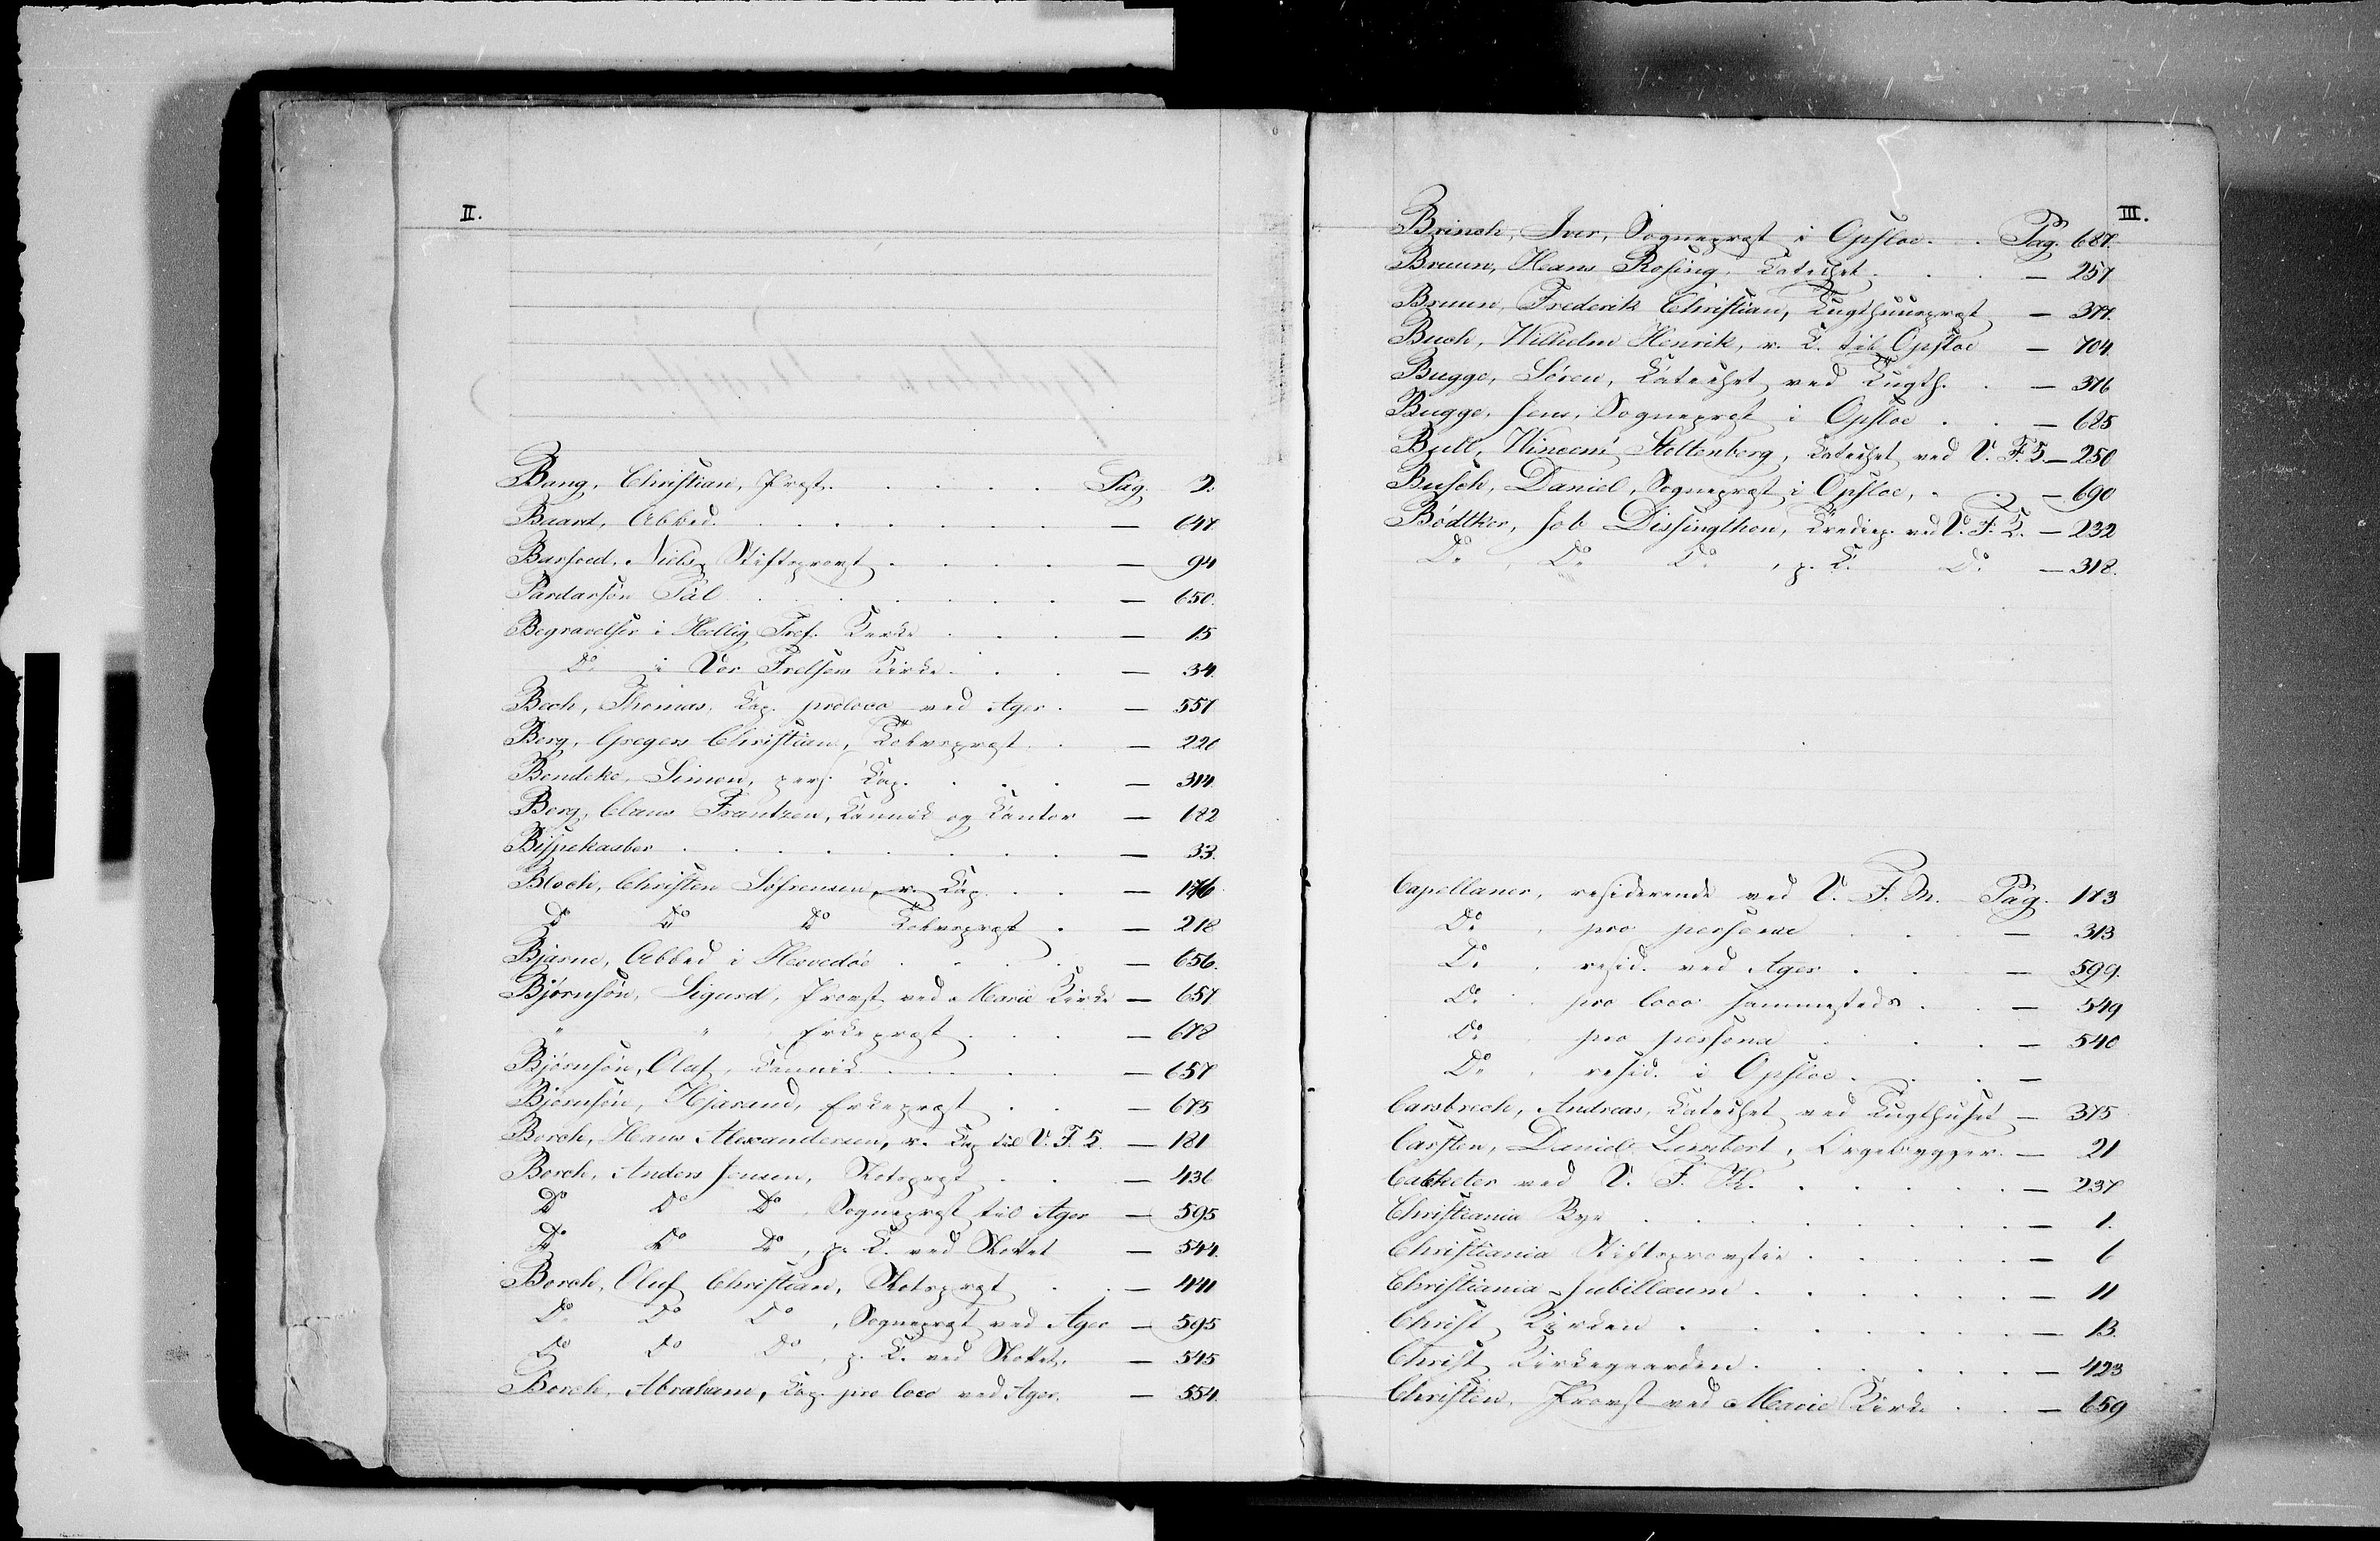 II.
Bang, Christian, Præst . . . . . Pag. 2.
Baard, Abbed . . . . . . . — 647
Barfoed, Niels, Stiftsprovst . . . . — 94
Pardarsön Pål . . . . . . . — 650.
Begravelser i Hellig Tref. Kirke . . . — 15
Do i Vor Frelsers Kirke . . . — 34.
Bech, Thomas, Kap. proloco ved Ager . — 557
Berg, Gregers Christian, Toldprest . . — 220
Bendeke, Simon, pers. Kap. . . . — 314.
Berg, Claus Frantzen, Kannik og Kantor — 182
Bispekasber . . . . . . . — 33.
Bloch, Christen Söfrensen, r. Kap. . . — 176
Do Do Do . — 218
Bjarne, Abbed i Hovedöe . . . . — 656.
Björnsön, Sigurd, Provst ved Marie Kirke — 657
" " Erkeprest . . . — 678
Björnsön, Oluf, Kannik . . . . . — 657
Björnsön, Hjarand, Erkeprest . . . — 675
Borch, Hans Alexandersen, r. Kap. til V. F. K. — 181
Borch, Anders Jensen, Slotsprest . . . — 436
Do Do Do, Sogneprest til Ager — 595
Do Do Do, p. K. ved Slottet — 544.
Borch, Oluf Christian, Slotsprest . . — 441
Do Do Do, Sogneprest ved Ager — 595
Do Do Do, p. K. ved Slottet. — 545
Borch, Abraham, Kap. pro loco ved Ager. — 554.
III.
Brinch, Iver, Sogneprest i Opsloe . . Pag. 687.
Bruun, Hans Rosing, Katechet . . . — 257
Bruun, Frederik Christian, Tugthuusprest — 377.
Buch, Wilhelm Henrik, r. K. til Opsloe — 704.
Bugge, Sören, Katechet ved Tugth. . — 376
Bugge, Jens, Sogneprest i Opsloe . . — 685
Bull, Vincent Stoltenberg, Katechet ved V. F. K. — 250
Busch, Daniel, Sogneprest i Opsloe, . . — 690
Bödtker, Job Dissingthon, ved V. F. K. — 232
Do, Do Do, p. K. Do — 318.
Capellaner, residerende ved V. F. K. Pag. 173
Do, pro persona . . . — 313
Do, resid. ved Ager . . . — 599.
Do pro loco sammesteds . . — 549
Do, pro persona . . . — 540
Do, resid. i Opsloe . . . —
Carsbrech, Andreas, Katechet ved Tugthuset — 375
Carsten, Daniel Lambert, Orgelbygger — 21
Catheter ved V. F. K. . . . . . — 237
Christiania Bye . . . . . . . — 1.
Christiania Stiftsprovstie . . . . . — 6
Christiania Jubillæum . . . . . . — 11
Christ Kirken . . . . . . . — 13.
Christ Kirkegaarden . . . . . . — 423
Christen, Provst ved Marie Kirke . . — 659